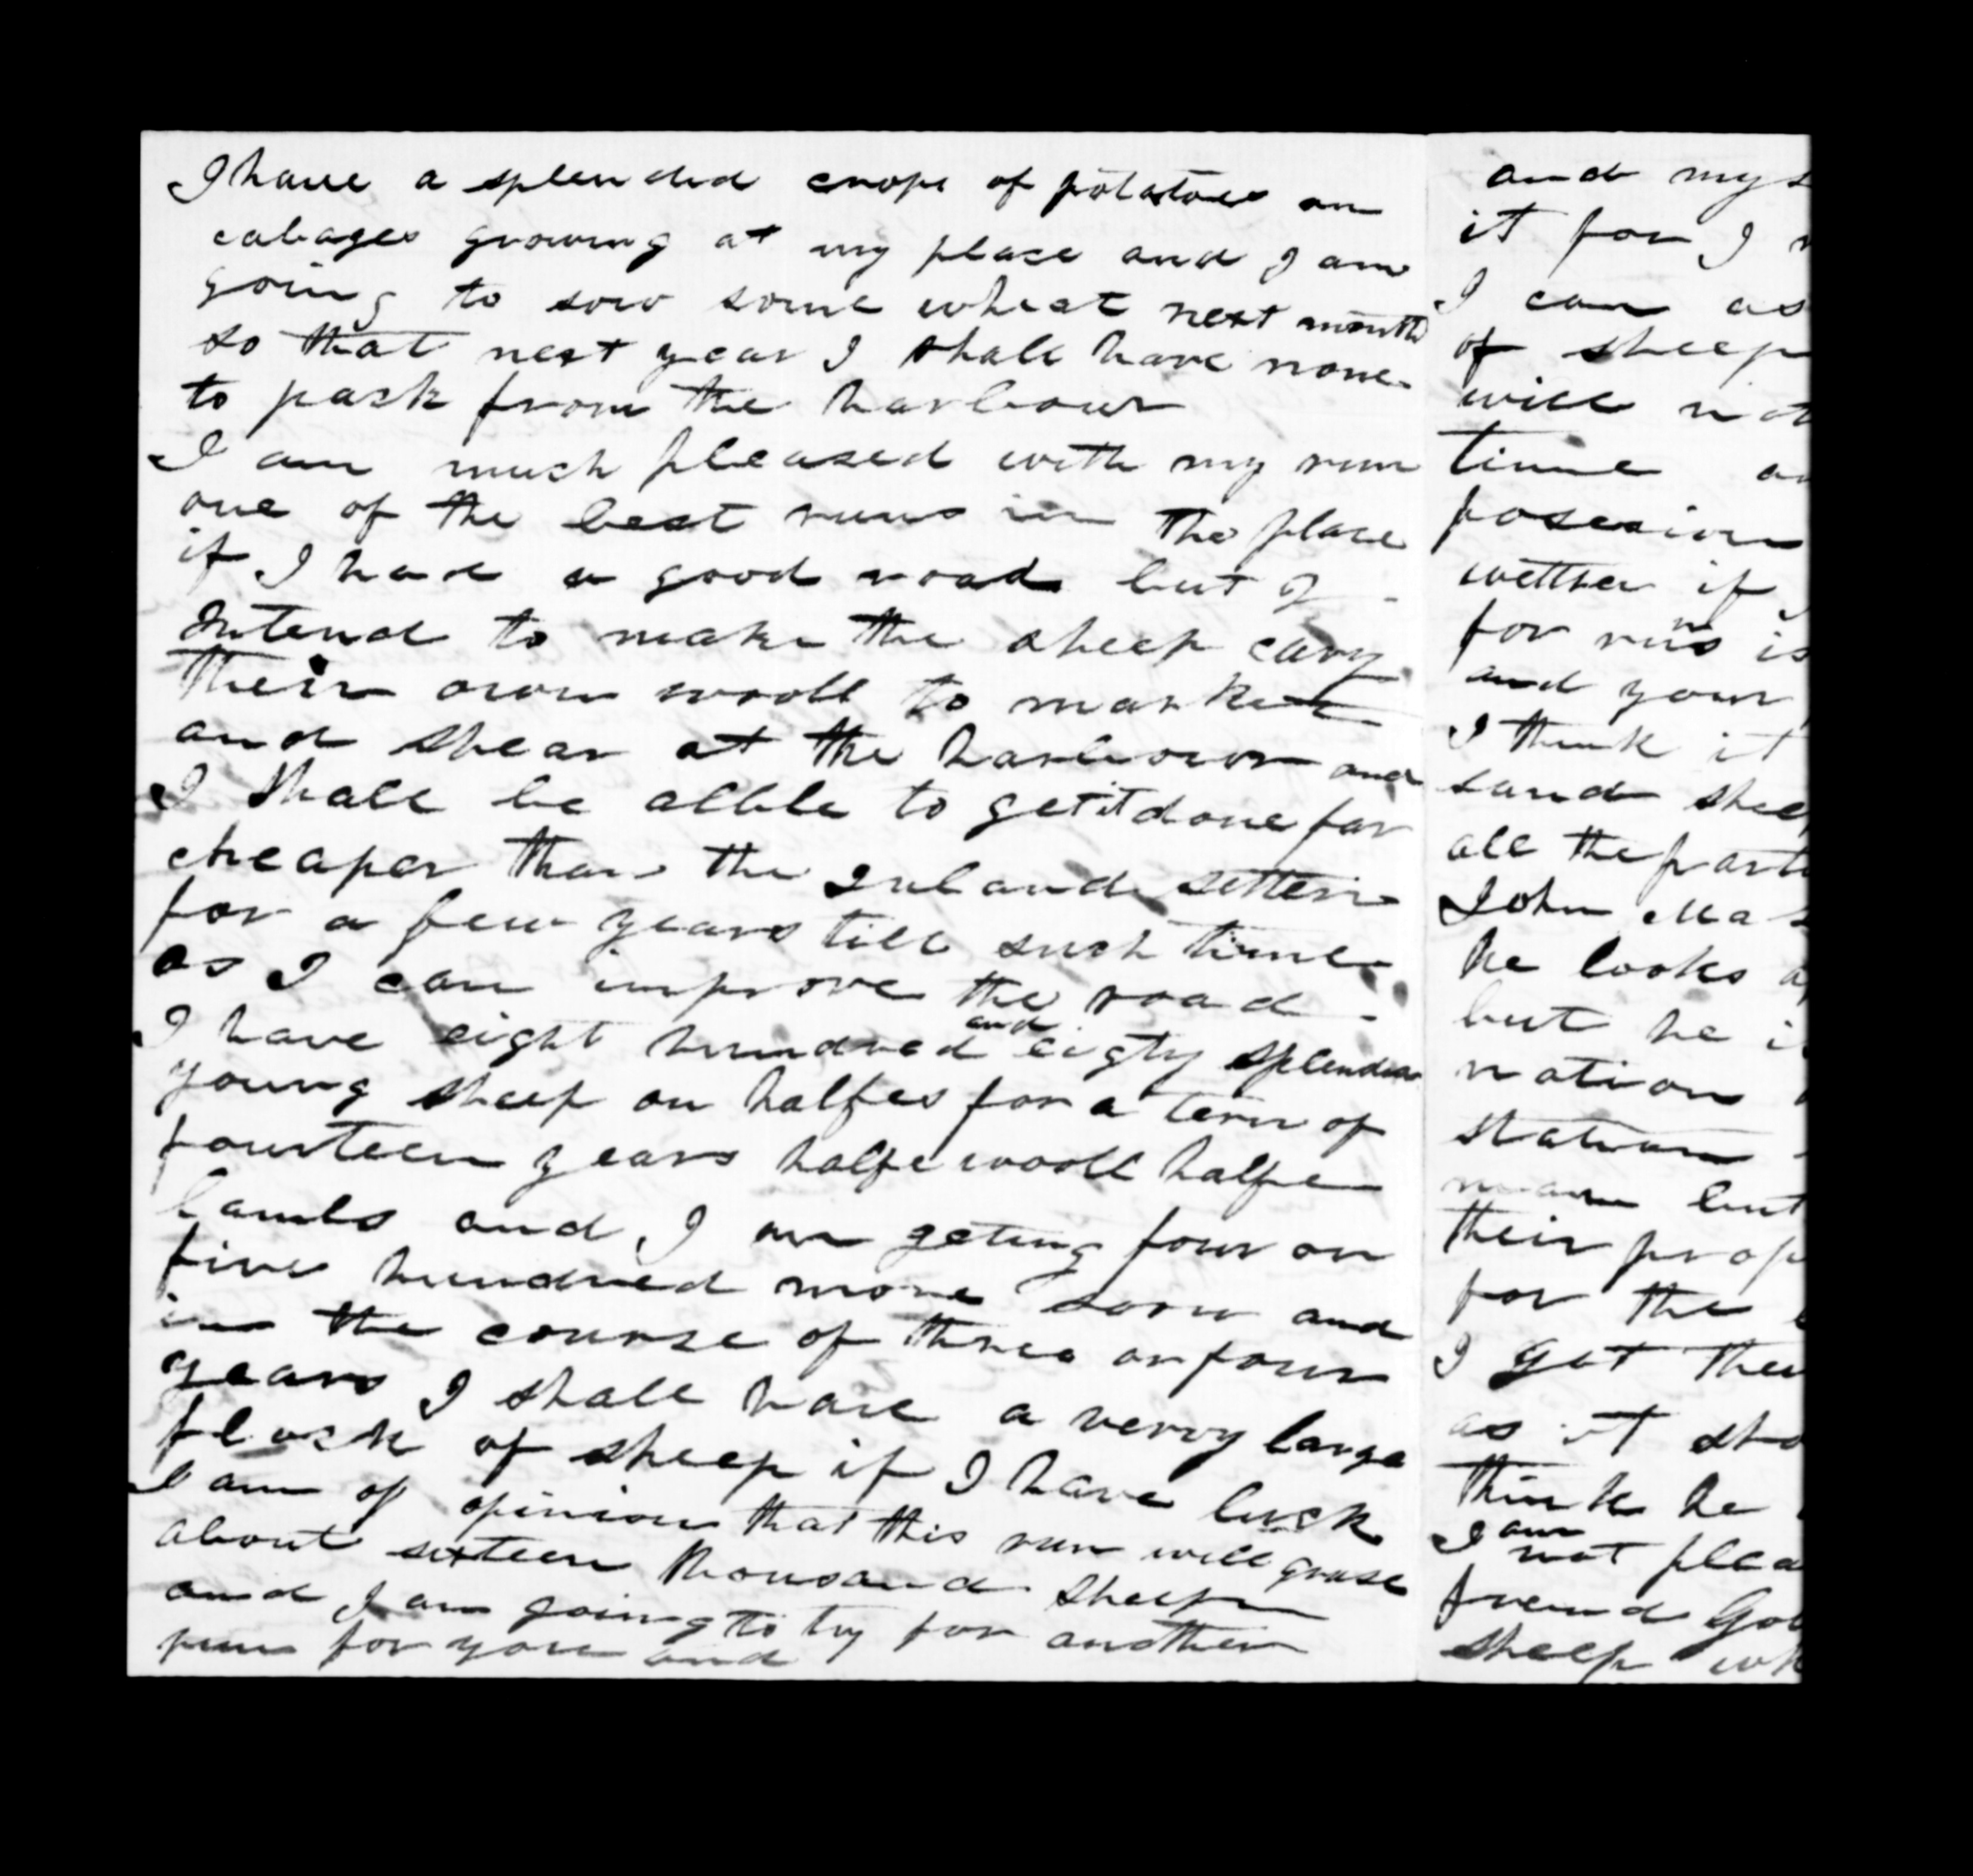 I have a splended crope of potatoes an
cabages growing at my place and I am
going to sow some wheat next month
so that next year I shall have none
to pack from the harbour
I am much pleased with my run
one of the best runs in the place
if I had a good road but I
Intend to make the sheep cary
their own wooll to market
and shear at the harbour and
I shall be allble to get it done far
cheaper than the Inland setters
for a few years till such time
as I can improve the road -
I have eight hundred and eigty splended
young sheep on halfes for a term of
fourteen years halfe wooll halfe
lambs and I am geting four or
five hundred more soon and
in the course of three or four
years I shall have a verry large
flock of sheep if I have luck
I am of opinion that this run will grase
about sixteen thousand sheep
and I am going to try for another
run for youre and
and mys
it for I
I can as
of sheep
will not
time a
posesion
wether if
for runs is
and your
I think it
sand shee
all the part
John Ma
he looks a
but he i
nation
station
man but
their prop
for the
I got the
as it sho
think he
I am not plea
freind Go
sheep wh